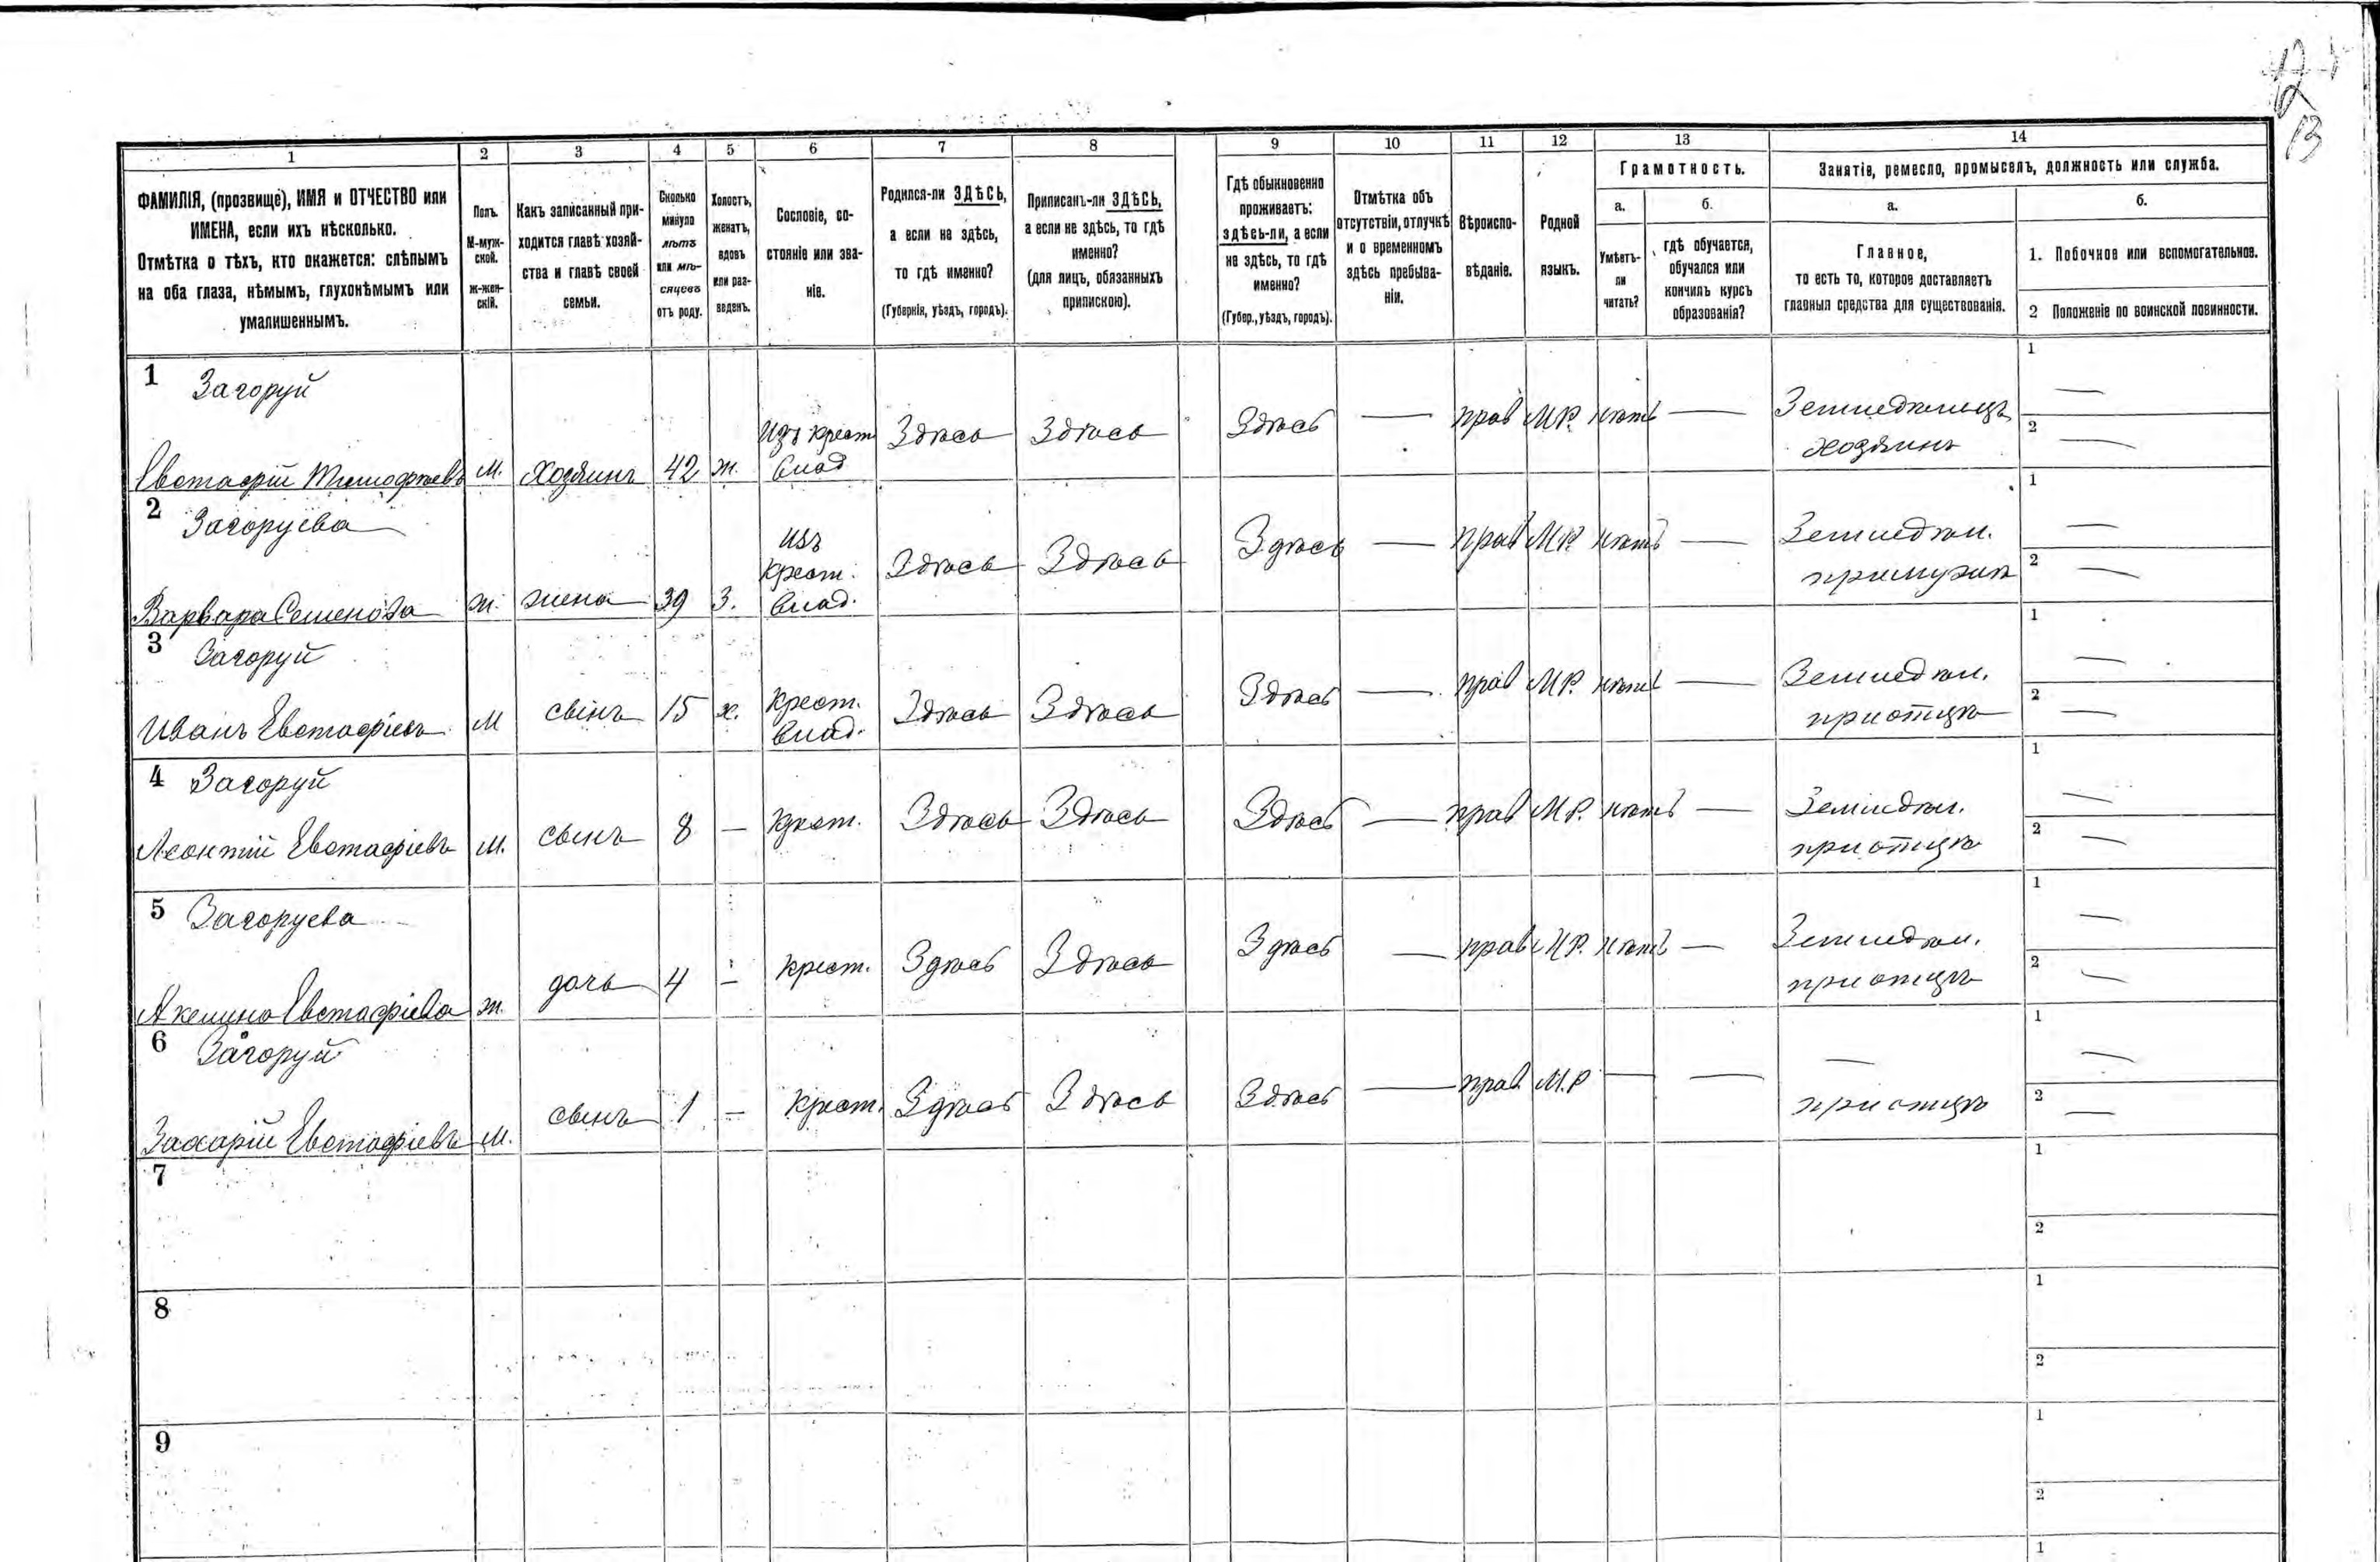 12
13
1 2 3 4 5 6 7 8 9 10 11 12 13 14
ФАМИЛІЯ, (прозвище), ИМЯ и ОТЧЕСТВО или
ИМЕНА, если ихъ нѣсколько.
Отмѣтка о тѣхъ, кто окажется: слѣпымъ
на оба глаза, нѣмымъ, глухонѣмымъ или
умалишеннымъ.
Полъ.
М-муж-
ской.
ж-жен-
скій.
Какъ записанный при-
ходится главѣ хозяй-
ства и главѣ своей
семьи.
Сколько
минуло
лѣтъ
или мѣ-
сяцевъ
отъ роду.
Холостъ,
женатъ,
вдовъ
или раз-
веденъ.
Сословіе, со-
стояніе или зва-
ніе.
Родился-ли ЗДѢСЬ,
а если не здѣсь,
то гдѣ именно?
(Губернія, уѣздъ, городъ).
Приписанъ-ли ЗДѢСЬ,
а если не здѣсь, то гдѣ
именно?
(для лицъ, обязанныхъ
припискою).
Гдѣ обыкновенно
проживаетъ:
здѣсь-ли, а если
не здѣсь, то гдѣ
именно?
(Губер., уѣздъ, городъ).
Отмѣтка объ
отсутствіи, отлучкѣ
и о временномъ
здѣсь пребыва-
ніи.
Вѣроиспо-
вѣданіе.
Родной
языкъ.
Грамотность.
а.
Умѣетъ-
ли
читать?
б.
гдѣ обучается,
обучался или
кончилъ курсъ
образованія?
Занятіе, ремесло, промыселъ, должность или служба.
а.
Главное,
то есть то, которое доставляетъ
главныя средства для существованія.
б.
1. Побочное или вспомогательное.
2 Положеніе по воинской повинности.
1 Загоруй
Евстафій Тимофѣевъ М. Хозяинъ 42 ж. Изъ крест Влад Здѣсь Здѣсь Здѣсь — прав М.Р. нѣтъ — Земледѣлецъ хозяинъ 1 — 2 —
2 Загоруева
Варвара Семенова ж. жена 39 З. изъ Крест. Влад. Здѣсь Здѣсь Здѣсь — прав М.Р. нѣтъ — Земледѣл. при мужѣ 1 — 2 —
3 Загоруй
Иванъ Евстафіевъ М сынъ 15 х. Крест. Влад. Здѣсь Здѣсь Здѣсь — прав М.Р. нѣтъ — Земледѣл. при отцѣ 1 — 2 —
4 Загоруй
Леонтій Евстафіевъ М. сынъ 8 — Крест. Здѣсь Здѣсь Здѣсь — прав М.Р. нѣтъ — Земледѣл. при отцѣ 1 — 2 —
5 Загоруева
Акелина Евстафіева ж. дочь 4 — крест. Здѣсь Здѣсь Здѣсь — прав М.Р. нѣтъ — Земледѣл. при отцѣ 1 — 2 —
6 Загоруй
Захарій Евстафіевъ М. сынъ 1 — Крест. Здѣсь Здѣсь Здѣсь — прав. М.Р — — — при отцѣ 1 — 2 —
7 1 2
8 1 2
9 1 2
1